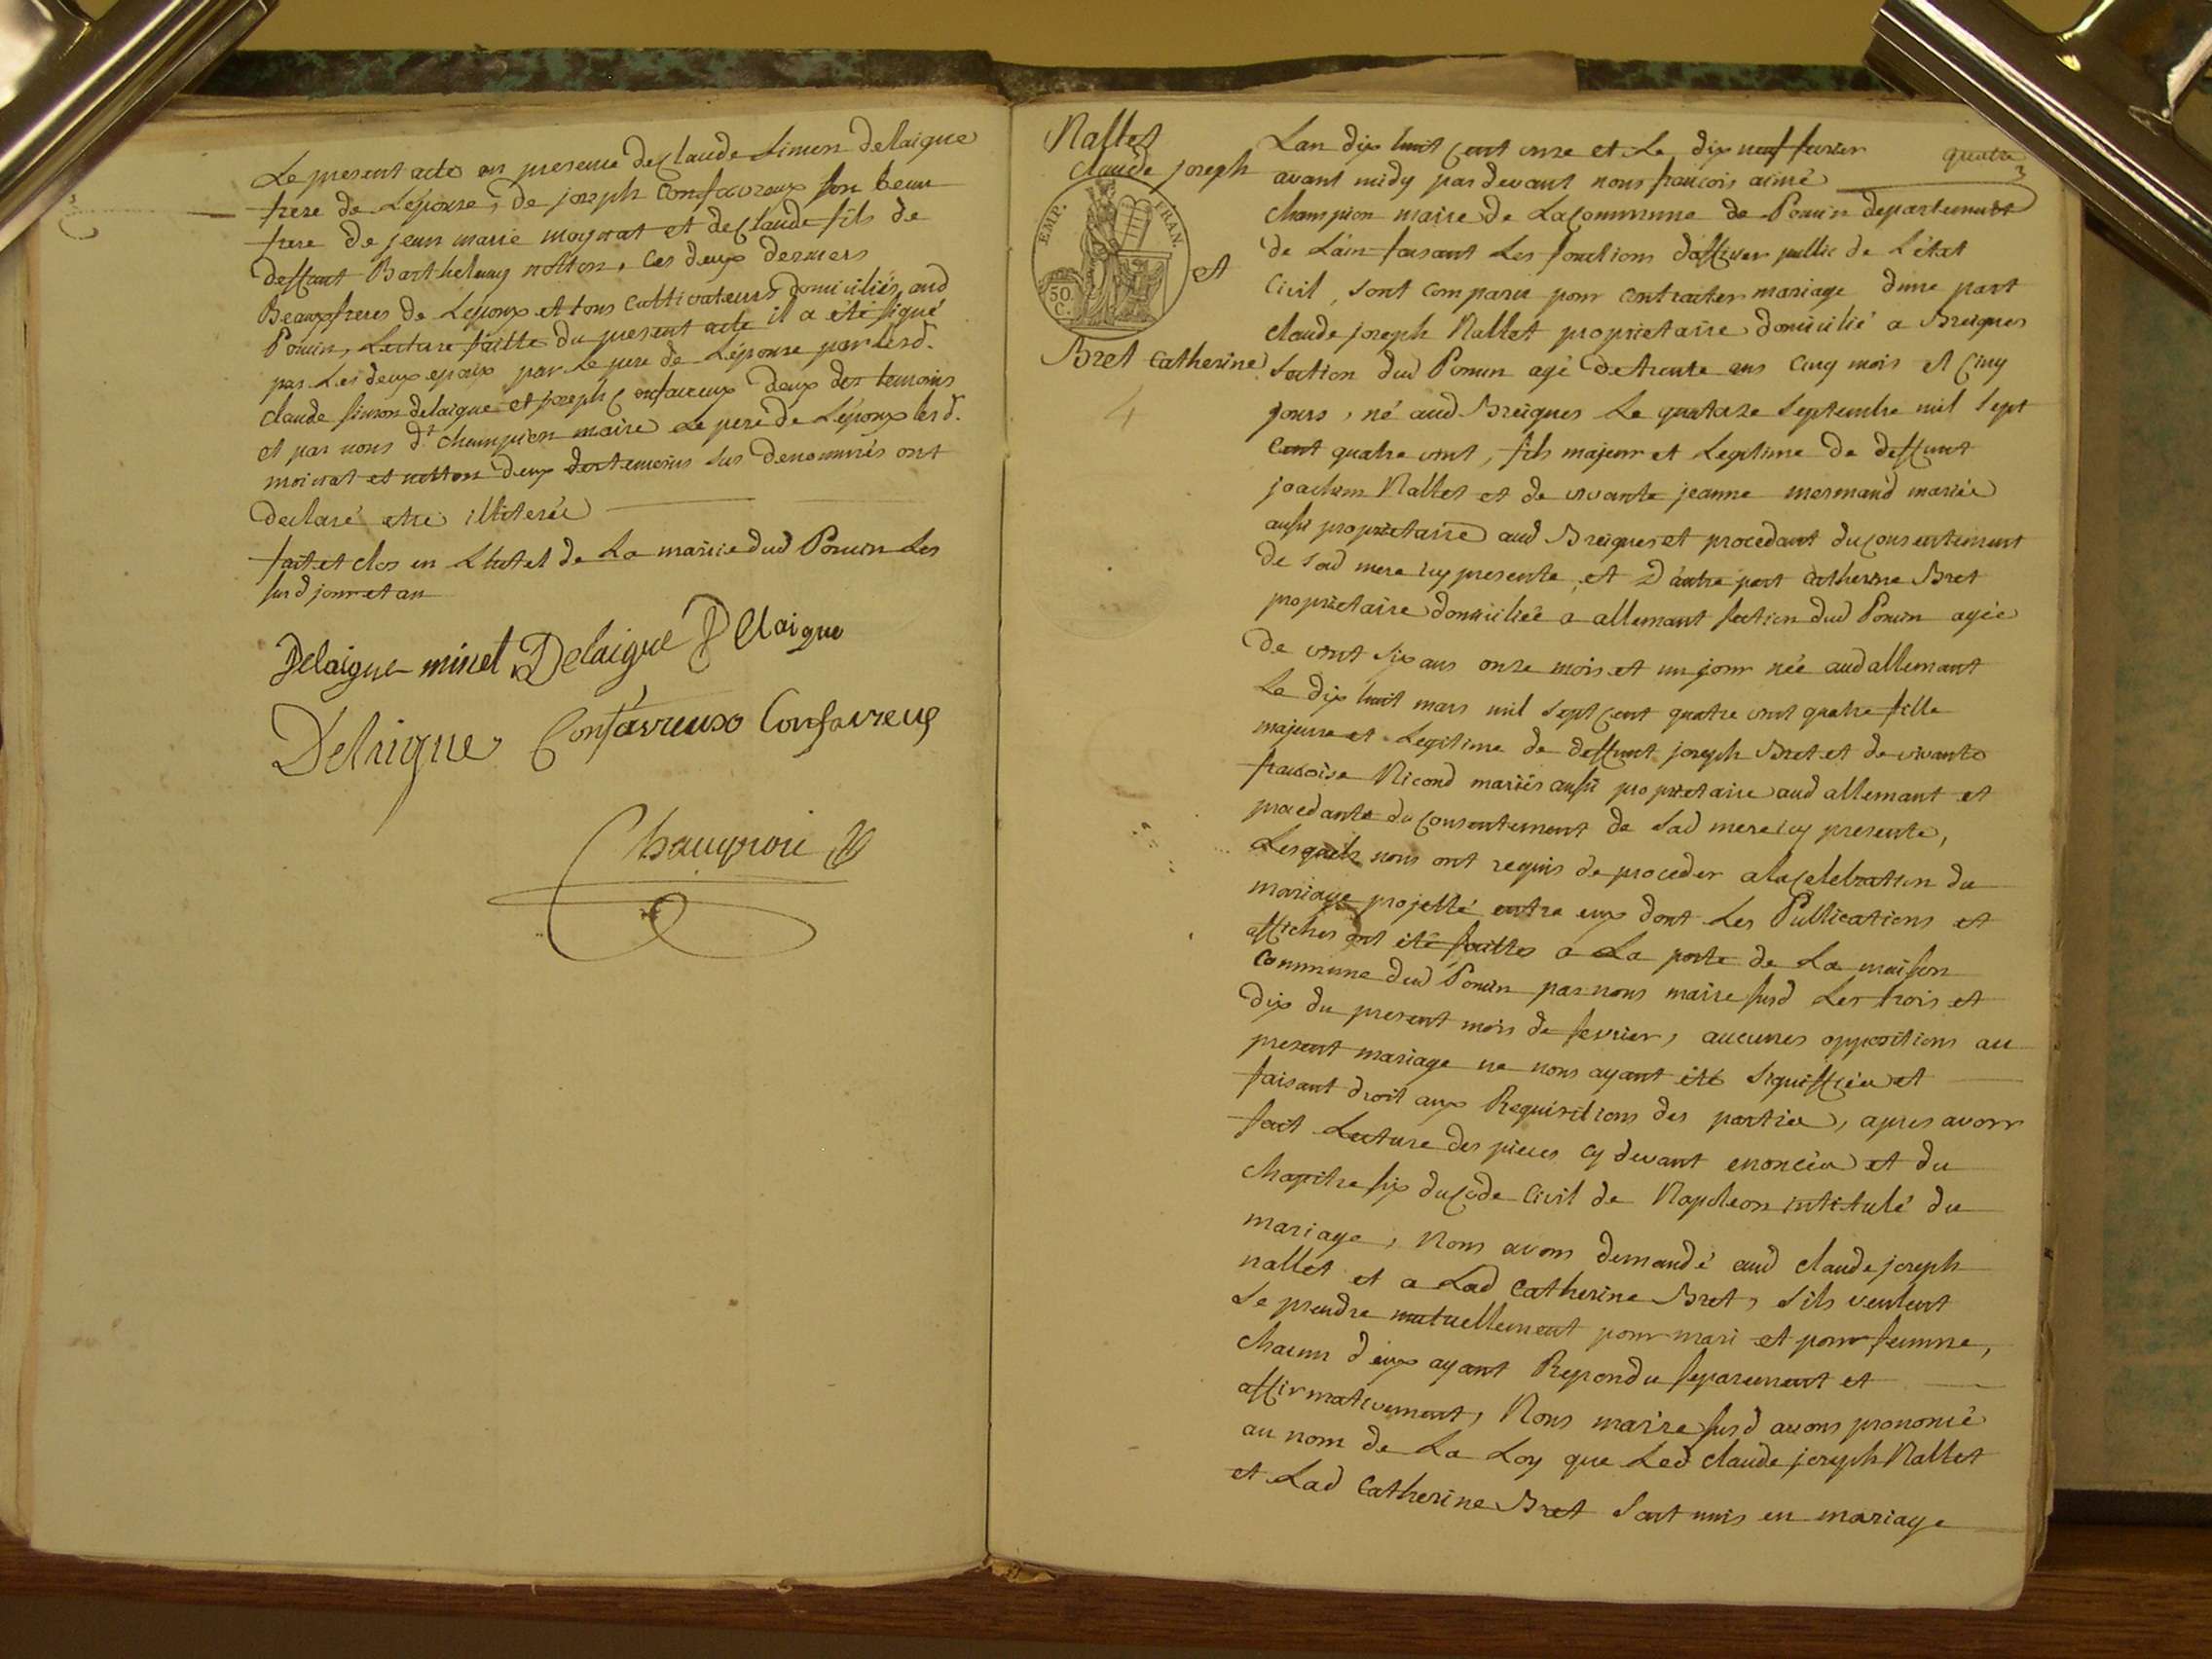 Le present acte en presence de Claude Simon Delaigue
frere de L'épouse, de joseph Confavreux son beau
frere de jean marie moynat et de Claude fils de
deffunt Barthelemy notton, Ces deux derniers
Beauxfreres de Lepoux et tous Cultivateurs domiciliés aud
Poncin, Lecture faitte du present acte il a été signé
par Les deux epoux par Le pere de L'épouse par Lesd.
Claude simon delaigue et joseph Confavreux deux des temoins
et par nous dt Champion maire Le pere de L'époux lesd.
moinat et notton deux des temoins sus denommés ont
declaré etre illiterée
fait et clos en L'hotel de La mairie dud Poncin Les
susd jour et an
Delaigue minet Delaigue Delaigue
Delaigue Confavreux Confavreux
Champion
Nallet
Claude joseph
EMP. FRAN.
50.
C.
et
Bret Catherine
4
quatre
3
Lan dix huit Cent onze et Le dix neuf fevrier
avant midy par devant nous francois aimé
Champion maire de La Commune de Poncin departement
de L'ain faisant Les fonctions d'afficier public de L'état
Civil, sont Comparu pour Contracter mariage, d'une part
Claude joseph Nallet proprietaire domicilié a Breignes
section dud Poncin agé de trente ans Cinq mois et Cinq
jours, né aud Breignes Le quatorze septembre mil sept
Cent quatre vint, fils majeur et Legitime de deffunt
joachim Nallet et de vivante jeanne mermand mariée
aussi proprietaire aud Breignes et procedant du Consentement
de sad mere icy presente, et D'autre part Catherine Bret
proprietaire domiciliée a allemant section dud Poncin agée
de vint six ans onze mois et un jour née aud allemant
Le dix huit mars mil sept Cent quatre vint quatre fille
majeure et Legitime de deffunt joseph Bret et de vivante
francoise Nicond mariés aussi proprietaire aud allemant et
procedante du Consentement de sad mere icy presente,
Lesquels nous ont requis de proceder a la Celebration du
mariage projetté entre eux dont Les Publications et
affiches ont été faittes a La porte de La maison
Commune dud Poncin par nous maire susd Les trois et
dix du present mois de fevrier, aucunes oppositions au
present mariage ne nous ayant été signiffiéa et
faisant droit aux Requisitions des partiea, apres avoir
fait Lecture des pieces cy devant enoncéa et du
Chapitre six du Code Civil de Napoleon intitulé du
mariage, Nous avons demandé aud Claude joseph
nallet et a Lad Catherine Bret, s'ils veulent
se prendre mutuellement pour mari et pour femme,
Chacun d'eux ayant Repondu separement et
affirmativement, Nous maire susd avons prononcé
au nom de La Loy que Led Claude joseph Nallet
et Lad Catherine Bret sont unis en mariage